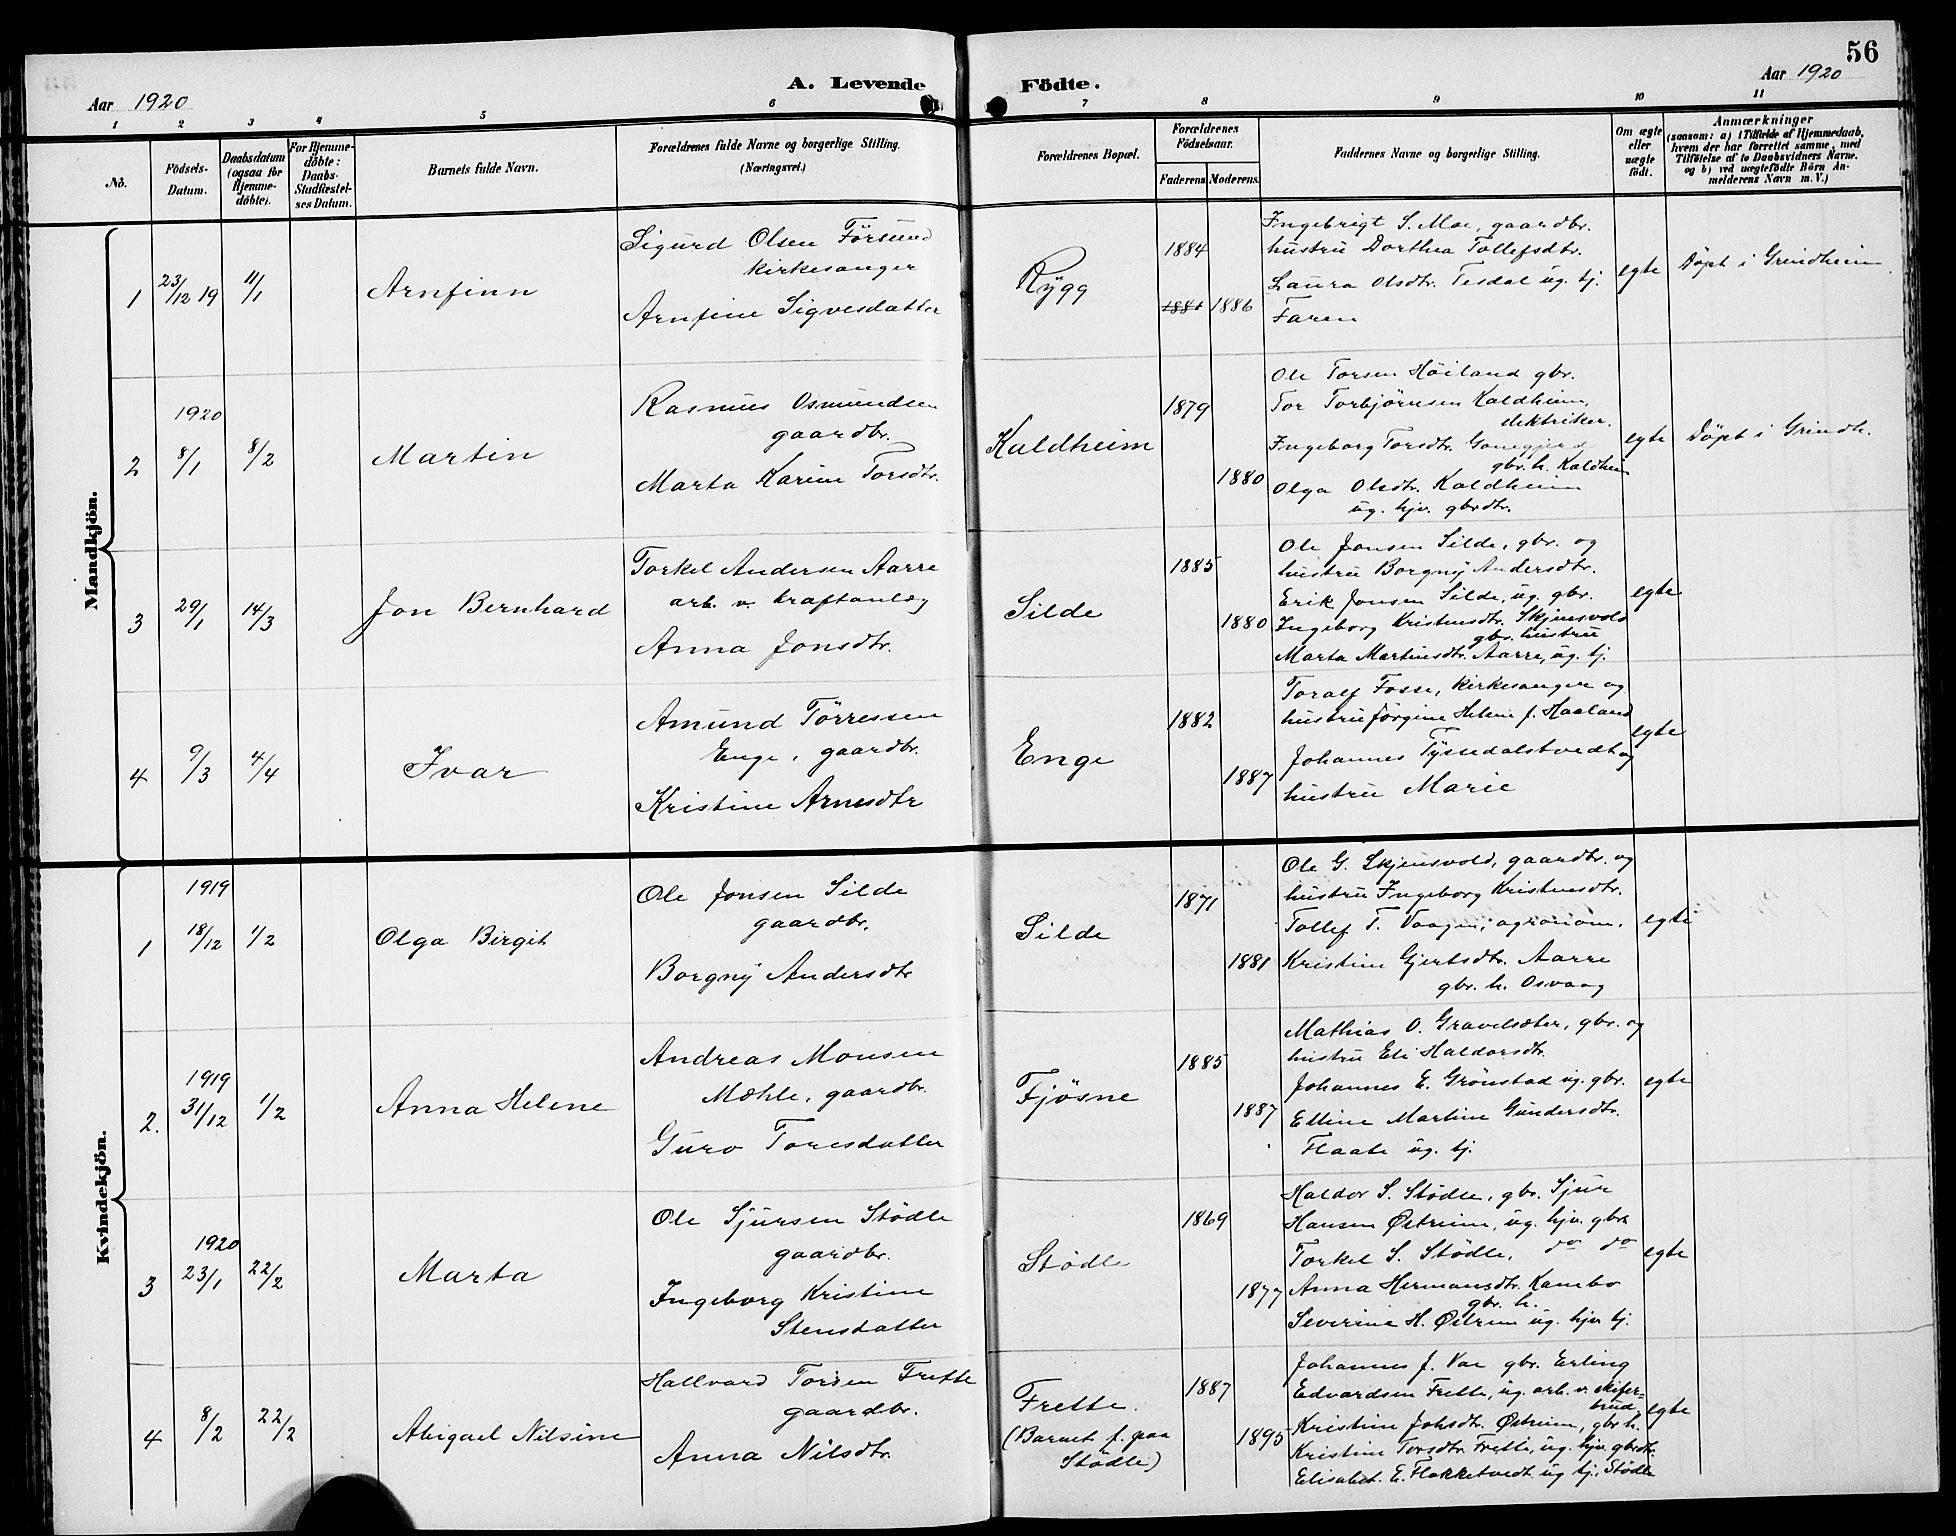 56
Aar 1920
A. Levende Födte.
Aar 1920
1 2 3 4 5 6 7 8 9 10 11
No.
Födsels-Datum.
Daabsdatum (ogsaa for Hjemme-döbte).
For Hjemme-döbte: Daabs-Stadfæstel-ses Datum.
Barnets fulde Navn.
Forældrenes fulde Navne og borgerlige Stilling.
(Næringsvei.)
Forældrenes Bopæl.
Forældrenes Födselsaar.
Faderens Moderens.
Faddernes Navne og borgerlige Stilling.
Om ægte eller uægte födt.
Anmærkninger
(saasom: a) i Tilfælde af Hjemmedaab,
hvem der har forrettet samme, med
Tilföielse af to Daabsvidners Navne.
og b) ved uægtefödte Börn An-
melderens Navn m. V.)
Mandkjön.
1 23/12 19 11/1 Arnfinn
Sigurd Olsen Försund
kirkesanger
Arnfine Sigvesdatter
Rygg
1884
1881 1886
Ingebrigt S. Moe, gaardbr.
hustru Dorthea Tollefsdtr.
Laura Olsdtr. Tesdal ug. tj.
Faren
egte
Döpt i Grindheim
1920
2 8/1 8/2 Martin
Rasmus Osmundsen
gaardbr.
Marta Karine Torsdtr.
Kaldheim
1879
1880
Ole Torsen Höiland gbr.
Tor Torbjörnsen Kaldheim,
elektriker.
Ingeborg Torsdtr.
gbr. h. Kaldheim
Olga Olsdtr. Kaldheim
ug. hjv. gbrdtr.
egte
Döpt i Grindh.
3 29/1 14/3 Jon Bernhard
Torkel Andersen Aarre
arb. v. kraftanlæg
Anna Jonsdtr.
Silde
1885
1880
Ole Jonsen Silde, gbr. og
hustru Borgny Andersdtr.
Erik Jonsen Silde, ug. gbr.
Ingeborg Kristensdtr. Skjensvold
gbr. hustru
Marta Martinsdtr. Aarre, ug. tj.
egte
4 9/3 4/4 Ivar
Amund Törressen
Enge, gaardbr.
Kristine Arnesdtr
Enge
1882
1887
Toralf Fosse, kirkesanger og
hustru Jörgine Helene f. Haaland
Johannes Tysdalstvedt og
hustru Marie
egte
Kvindekjön.
1919
1 18/12 1/2 Olga Birgit
Ole Jonsen Silde
gaardbr.
Borgny Andersdtr
Silde
1871
1881
Ole G. Skjensvold, gaardbr. og
hustru Ingeborg Kristensdtr.
Tollef T. Vaagen, agronom.
Kristine Gjertsdtr. Aarre
gbr. h. Osvaag
egte
1919
2. 31/12 1/2 Anna Helene
Andreas Monsen
Mæhle, gaardbr.
Guro Toresdatter
Fjösne
1885
1887
Mathias O. Gravelsæter, gbr. og
hustru Eli Haldorsdtr.
Johannes E. Grönstad ug. gbr.
Elline Martine Gundersdtr.
Flaate ug. tj.
egte
1920
3 23/1 22/2 Marta
Ole Sjursen Stödle
gaardbr.
Ingeborg Kristine
Stensdatter
Stödle
1869
1877
Haldor S. Stödle, gbr. Sjur
Hansen Östrem, ug. hjv. gbr.
Torkel S. Stödle, do do
Anna Hermansdtr. Kambo
gbr. h.
Severine H. Östrem ug. hjv tj.
egte
4 8/2 22/2 Abigael Nilsine
Hallvard Torsen Frette
gaardbr.
Anna Nilsdtr.
Frette.
(Barnet f. paa
Stödle)
1887
1895
Johannes J. Vae gbr. Erling
Edvardsen Frette, ug. arb. v. skifer-
brud,
Kristine Johsdtr. Östrem, gbr. h.
Kristine Torsdtr. Frette, ug. hjv. gbrdtr.
Elisabet E. Flokketvedt ug tj. Stödle
egte